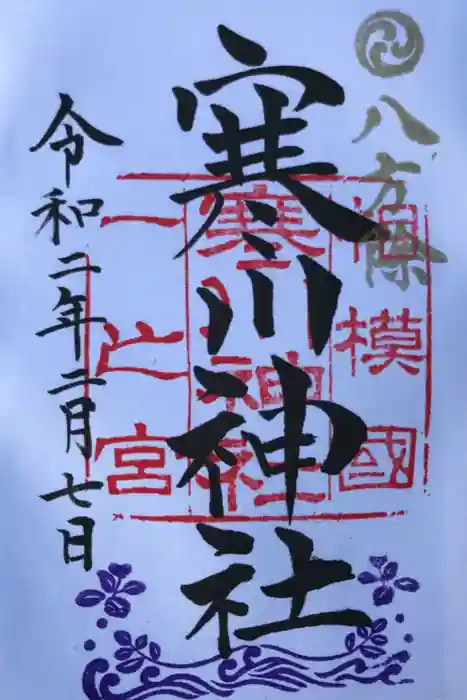 八方除
相模國
寒川神社
寒川神社
一之宮
令和二年二月七日